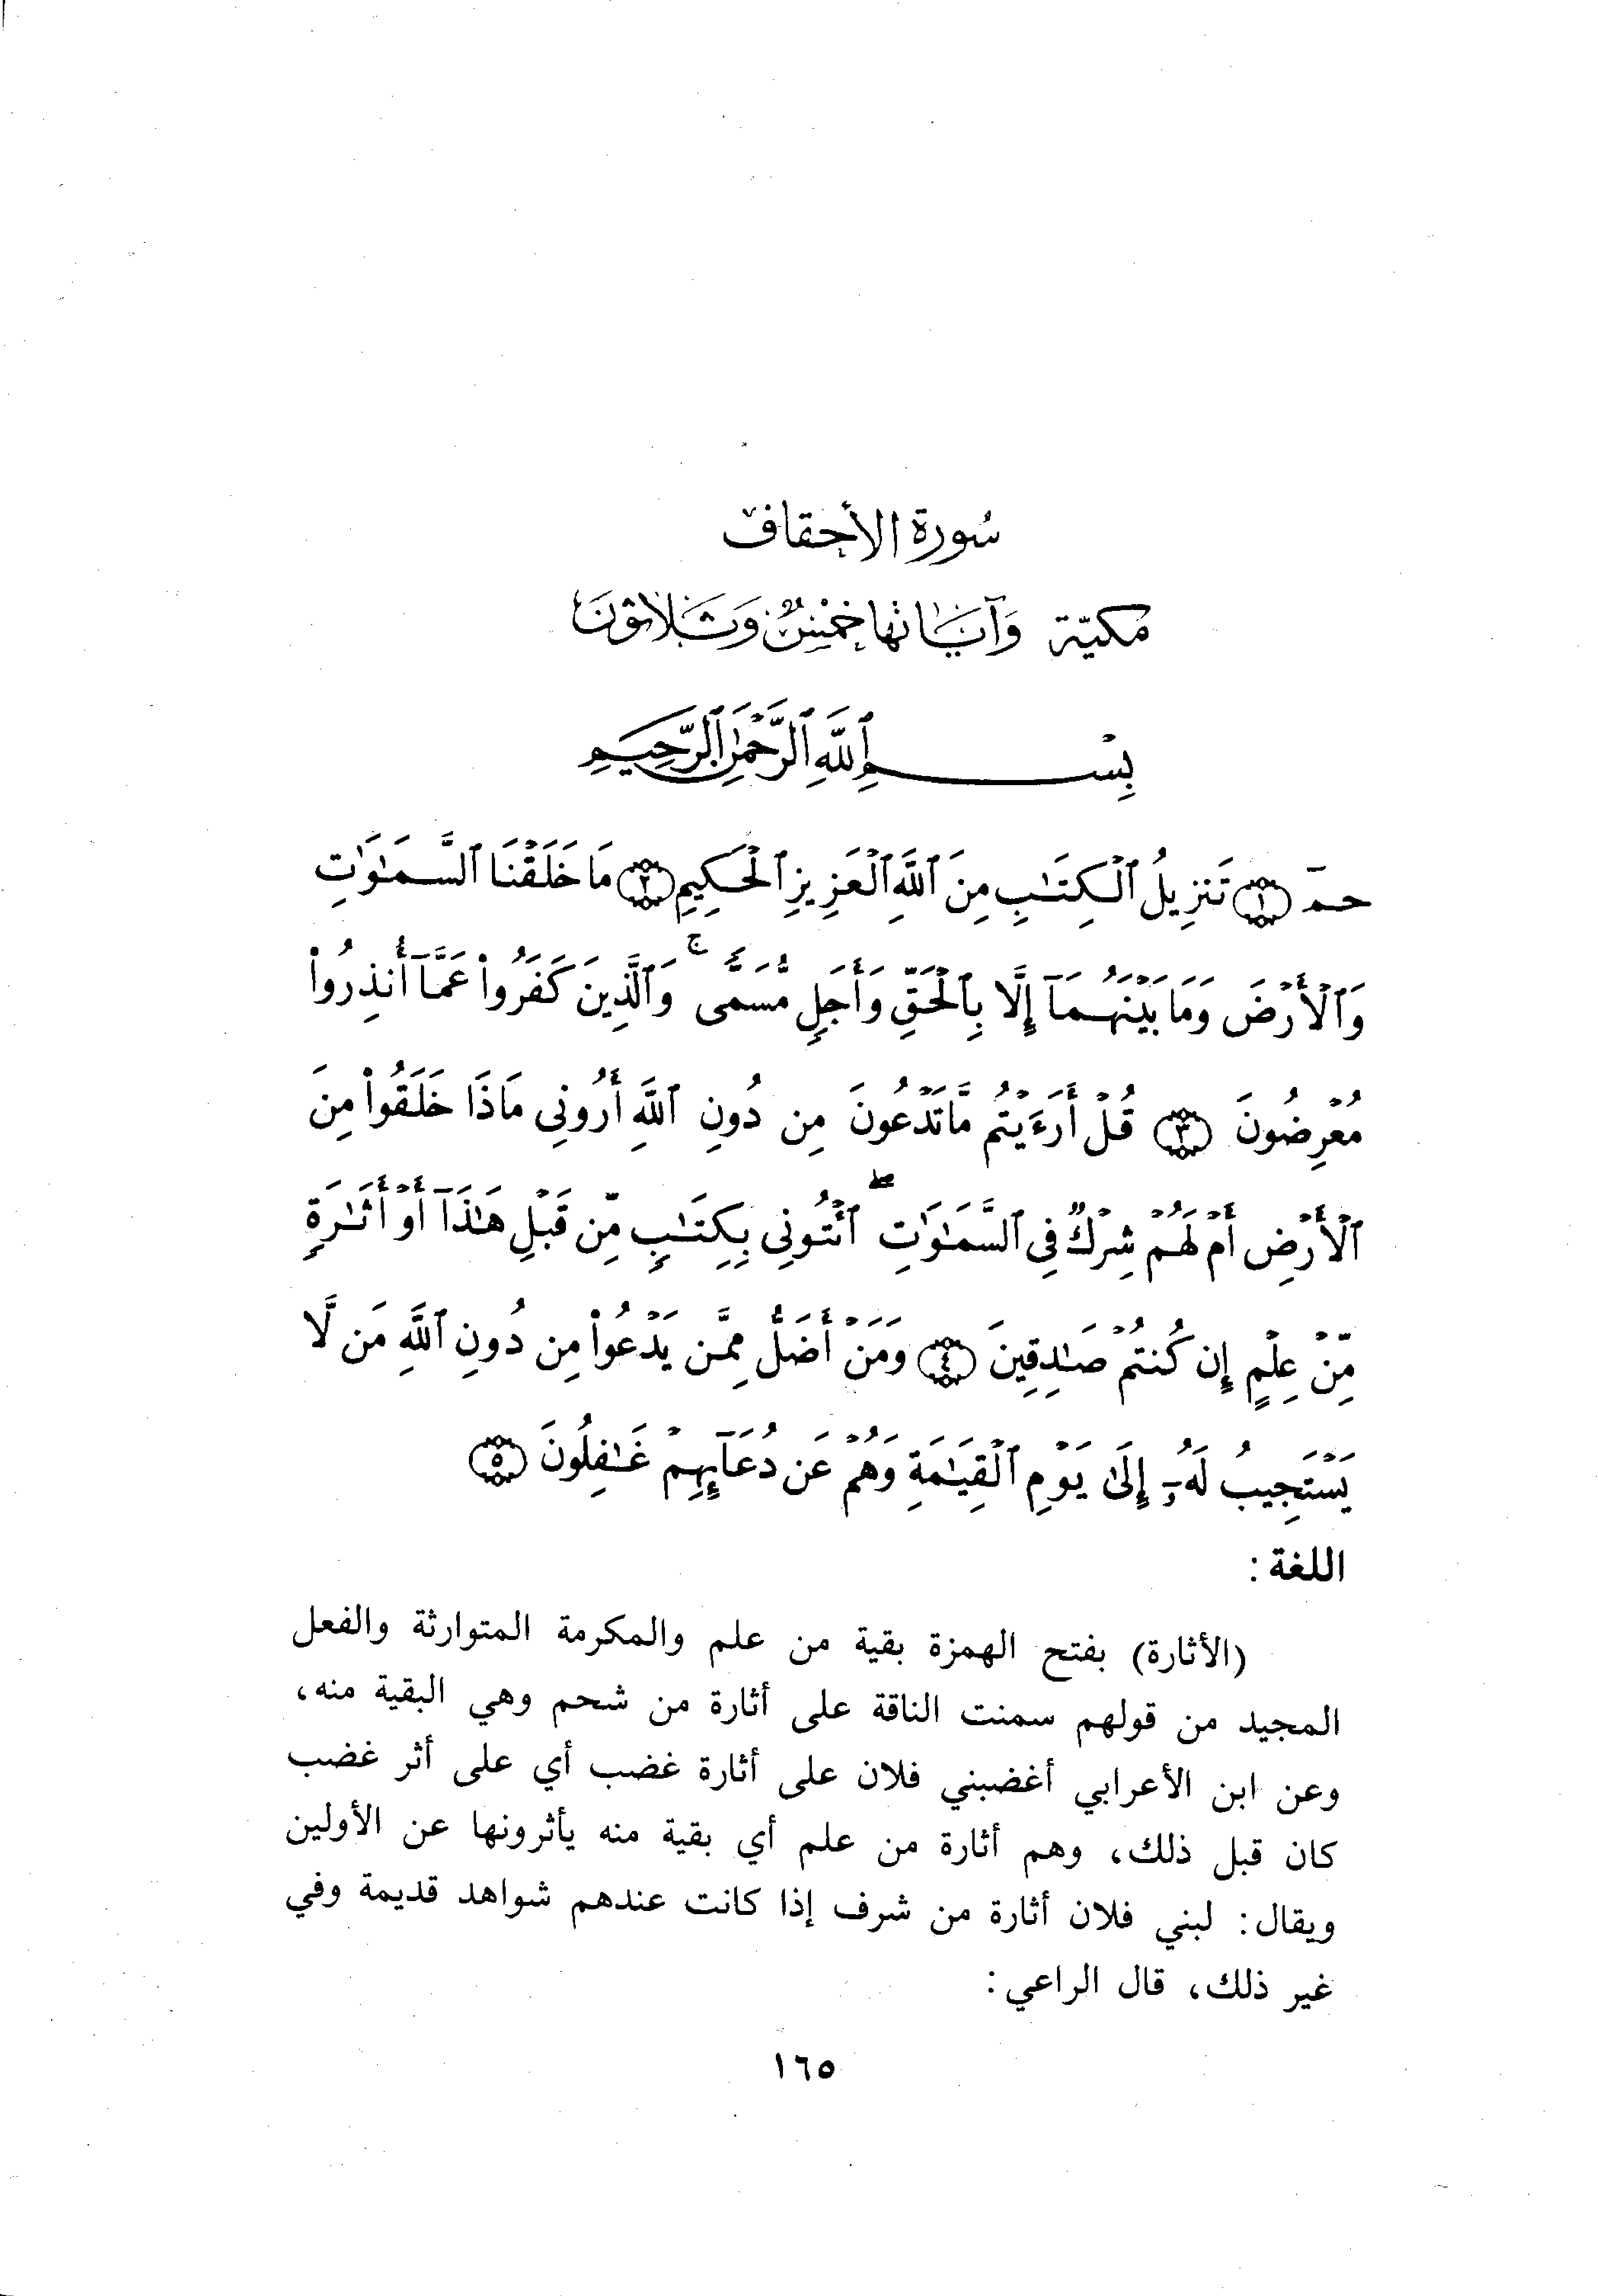 سُورة الأحقاف
مكيّة وَآيَاتها خَمْسٌ وَثَلَاثونَ
بِسْمِ ٱللَّهِ ٱلرَّحْمَٰنِ ٱلرَّحِيمِ
حمٓ ﴿١﴾ تَنزِيلُ ٱلْكِتَٰبِ مِنَ ٱللَّهِ ٱلْعَزِيزِ ٱلْحَكِيمِ ﴿٢﴾ مَا خَلَقْنَا ٱلسَّمَٰوَٰتِ
وَٱلْأَرْضَ وَمَا بَيْنَهُمَآ إِلَّا بِٱلْحَقِّ وَأَجَلٍ مُّسَمًّى ۚ وَٱلَّذِينَ كَفَرُوا۟ عَمَّآ أُنذِرُوا۟
مُعْرِضُونَ ﴿٣﴾ قُلْ أَرَءَيْتُم مَّا تَدْعُونَ مِن دُونِ ٱللَّهِ أَرُونِى مَاذَا خَلَقُوا۟ مِنَ
ٱلْأَرْضِ أَمْ لَهُمْ شِرْكٌ فِى ٱلسَّمَٰوَٰتِ ۖ ٱئْتُونِى بِكِتَٰبٍ مِّن قَبْلِ هَٰذَآ أَوْ أَثَٰرَةٍ
مِّنْ عِلْمٍ إِن كُنتُمْ صَٰدِقِينَ ﴿٤﴾ وَمَنْ أَضَلُّ مِمَّن يَدْعُوا۟ مِن دُونِ ٱللَّهِ مَن لَّا
يَسْتَجِيبُ لَهُۥٓ إِلَىٰ يَوْمِ ٱلْقِيَٰمَةِ وَهُمْ عَن دُعَآئِهِمْ غَٰفِلُونَ ﴿٥﴾
اللغة :
(الأثارة) بفتح الهمزة بقية من علم والمكرمة المتوارثة والفعل
المجيد من قولهم سمنت الناقة على أثارة من شحم وهي البقية منه،
وعن ابن الأعرابي أغضبني فلان على أثارة غضب أي على أثر غضب
كان قبل ذلك، وهم أثارة من علم أي بقية منه يأثرونها عن الأولين
ويقال: لبني فلان أثارة من شرف إذا كانت عندهم شواهد قديمة وفي
غير ذلك، قال الراعي :
١٦٥